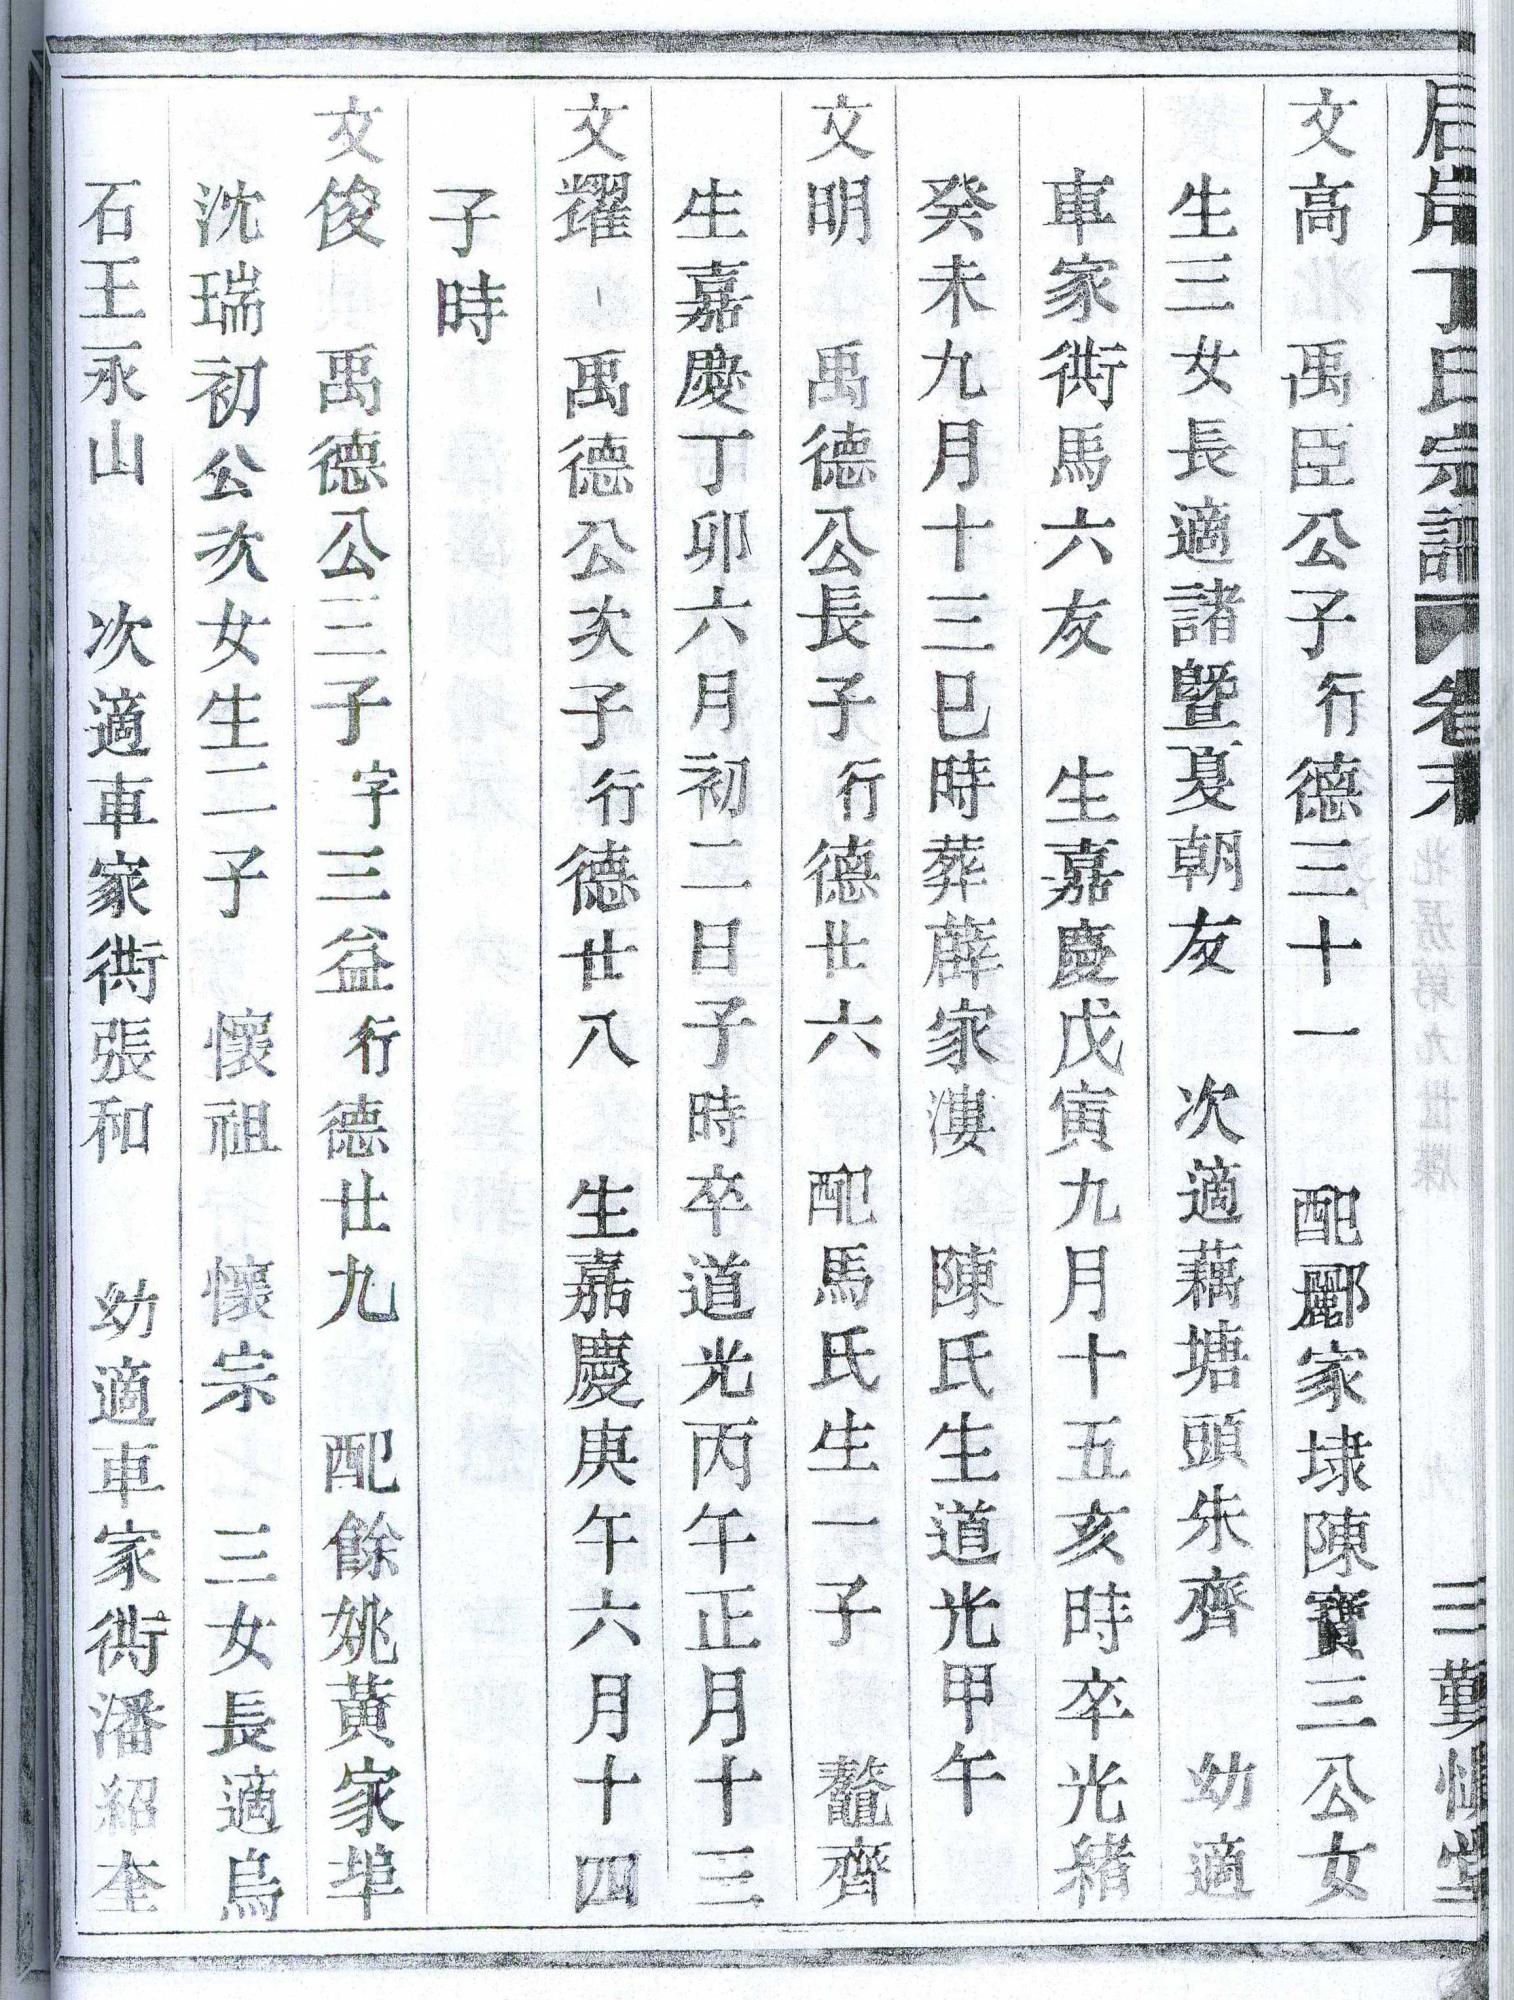 后岸丁氏宗譜 卷末 北房第九世牒 九 三勤慎堂
文高 禹臣公子行德三十一 配酈家埭陳寶三公女
生三女長適諸暨夏朝友 次適藕塘頭朱齊 幼適
車家衖馬六友 生嘉慶戊寅九月十五亥時卒光緒
癸未九月十三巳時葬薛家漊 陳氏生道光甲午
文明 禹德公長子行德廿六 配馬氏生一子 鼇齊
生嘉慶丁卯六月初二日子時卒道光丙午正月十三
文耀 禹德公次子行德廿八 生嘉慶庚午六月十四
子時
文俊 禹德公三子字三益行德廿九 配餘姚黃家埠
沈瑞初公次女生二子 懷祖 懷宗 三女長適烏
石王永山 次適車家衖張和 幼適車家衖潘紹奎